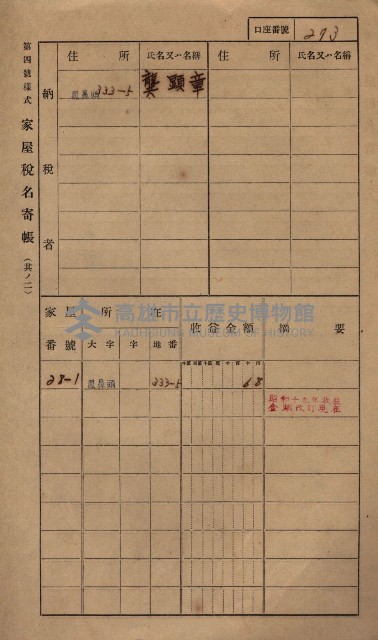 口座番號 293
第四號樣式 家屋稅名寄帳 (其ノ一)
納稅者
住所 氏名又ハ名稱 住所 氏名又ハ名稱
鳳鼻頭 333-5 龔顕章
高雄市立歷史博物館
KAOHSIUNG MUSEUM OF HISTORY
家屋番號 所在 收益金額 摘要
大字 字 地番
28-1 鳳鼻頭 333-5 68
昭和十九年收益
金額改訂現在